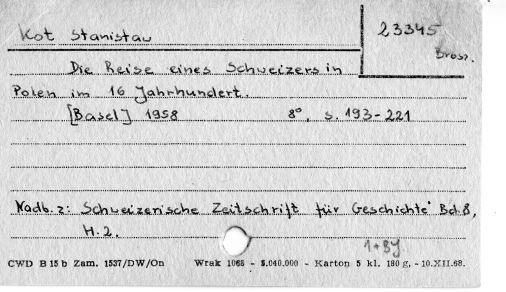 Kot Stanisław
23345
Brosz.
Die Reise eines Schweizers in
Polen im 16 Jahrhundert.
[Basel] 1958 8°, s. 193-221
Nadb. z: Schweizerische Zeitschrift für Geschichte Bd. 8,
H. 2.
CWD B 15 b Zam. 1537/DW/On Wrak 1065 - 5.040.000 - Karton 5 kl. 180 g, - 10.XII.68.